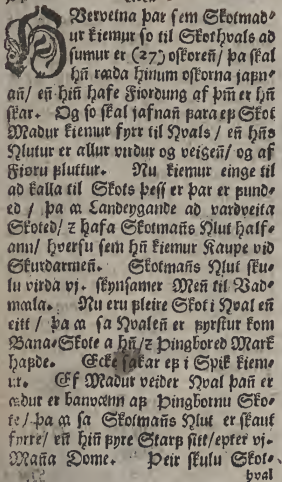 HVervetna þar sem Skotmad-
ur kiemur so til Skothvals ad
sumur er (27) oskoreñ/ þa skal
hñ ræda hinum oskorna japn-
añ/ eñ hiñ hafe Fiordung af þm̃ er hñ
skar. Og so skal jafnañ þara ep Skot
Madur kiemur fyrr til Hvals/ eñ hñs
Hlutur er allur virdur og veigeñ/ og af
Fioru fluttur. Nu kiemur einge til
ad kalla til Skots þess er þar er pund-
ed/ þa a Landeygande ad vardveita
Skoted/ ꝛ hafa Skotmañs Hlut half-
ann/ hversu sem hñ kiemur Kaupe vid
Skurdarmeñ. Skotmañs Hlut sku-
lu virda vj. skynsamer Meñ til Vad-
mæla. Nu eru pleire Skot i Hval eñ
eitt/ þa a sa Hvaleñ er pyrstur kom
Bana-Skote a hñ/ ꝛ Þingbored Mark
hapde. Ecke sakar ep i Spik kiem-
ur. Ef Madur veider Hval þañ er
ædur er banvænn ap Þingbornu Sko-
te/ þa a sa Skotmañs Hlut er skaut
fyrre/ eñ hiñ pyre Starp sitt/ epter vj.
Maña Dome. Þeir skulu Skot-
hval